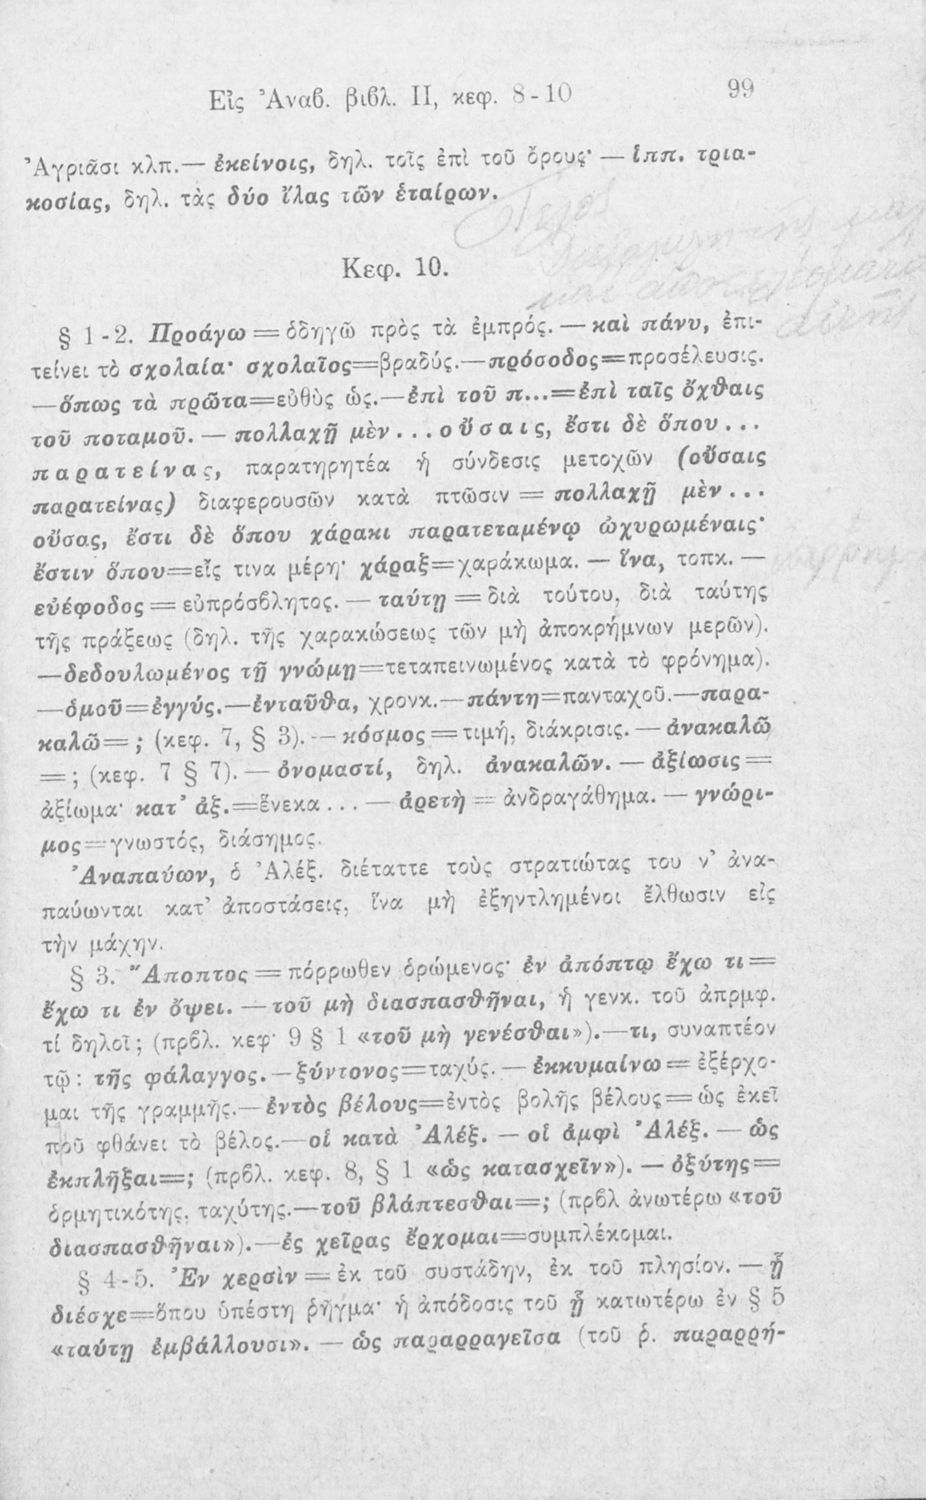 Εἰς Ἀναβ. βιβλ. II, κεφ. 8-10 99
Ἀγριᾶσι κλπ.— ἐκείνοις, δηλ. τοῖς ἐπὶ τοῦ ὄρους· — ἱππ. τρια-
κοσίας, δηλ. τὰς δύο ἴλας τῶν ἑταίρων.
Τέλος
Κεφ. 10.
§ 1-2. Προάγω = ὁδηγῶ πρὸς τὰ ἐμπρός. — καὶ πάνυ, ἐπι-
τείνει τὸ σχολαία· σχολαῖος=βραδύς.—πρόσοδος=προσέλευσις.
—ὅπως τὰ πρῶτα=εὐθὺς ὡς.—ἐπὶ τοῦ π...=ἐπὶ ταῖς ὄχθαις
τοῦ ποταμοῦ. — πολλαχῇ μὲν . . . οὔσαις, ἔστι δὲ ὅπου . . .
παρατείνας, παρατηρητέα ἡ σύνδεσις μετοχῶν (οὔσαις
παρατείνας) διαφερουσῶν κατὰ πτῶσιν = πολλαχῇ μὲν . . .
οὔσας, ἔστι δὲ ὅπου χάρακι παρατεταμένῳ ὠχυρωμέναις·
ἔστιν ὅπου=εἴς τινα μέρη· χάραξ=χαράκωμα. — ἵνα, τοπκ. —
εὐέφοδος = εὐπρόσβλητος. — ταύτῃ = διὰ τούτου, διὰ ταύτης
τῆς πράξεως (δηλ. τῆς χαρακώσεως τῶν μὴ ἀποκρήμνων μερῶν).
—δεδουλωμένος τῇ γνώμῃ=τεταπεινωμένος κατὰ τὸ φρόνημα).
—ὁμοῦ=ἐγγύς.—ἐνταῦθα, χρονκ.—πάντη=πανταχοῦ.—παρα-
καλῶ= ; (κεφ. 7, § 3). — κόσμος = τιμή, διάκρισις. — ἀνακαλῶ
= ; (κεφ. 7 § 7). — ὀνομαστί, δηλ. ἀνακαλῶν. — ἀξίωσις =
ἀξίωμα· κατ' ἀξ.=ἕνεκα . . . — ἀρετὴ = ἀνδραγάθημα. — γνώρι-
μος=γνωστός, διάσημος.
Ἀναπαύων, ὁ Ἀλέξ. διέταττε τοὺς στρατιώτας του ν' ἀνα-
παύωνται κατ' ἀποστάσεις, ἵνα μὴ ἐξηντλημένοι ἔλθωσιν εἰς
τὴν μάχην.
§ 3. Ἄποπτος = πόρρωθεν ὁρώμενος· ἐν ἀπόπτῳ ἔχω τι =
ἔχω τι ἐν ὄψει. — τοῦ μὴ διασπασθῆναι, ἡ γενκ. τοῦ ἀπρμφ.
τί δηλοῖ ; (πρβλ. κεφ· 9 § 1 «τοῦ μὴ γενέσθαι»).—τι, συναπτέον
τῷ : τῆς φάλαγγος. — ξύντονος=ταχύς. — ἐκκυμαίνω = ἐξέρχο-
μαι τῆς γραμμῆς.—ἐντὸς βέλους=ἐντὸς βολῆς βέλους = ὡς ἐκεῖ
ποῦ φθάνει τὸ βέλος.—οἱ κατὰ Ἀλέξ. — οἱ ἀμφὶ Ἀλέξ. — ὡς
ἐκπλῆξαι=; (πρβλ. κεφ. 8, § 1 «ὡς κατασχεῖν»). — ὀξύτης=
ὁρμητικότης, ταχύτης.—τοῦ βλάπτεσθαι=; (πρβλ ἀνωτέρω «τοῦ
διασπασθῆναι»).—ἐς χεῖρας ἔρχομαι=συμπλέκομαι.
§ 4-5. Ἐν χερσὶν = ἐκ τοῦ συστάδην, ἐκ τοῦ πλησίον. — ᾗ
διέσχε=ὅπου ὑπέστη ῥῆγμα· ἡ ἀπόδοσις τοῦ ᾗ κατωτέρω ἐν § 5
«ταύτῃ ἐμβάλλουσι». — ὡς παραρραγεῖσα (τοῦ ῥ. παραρρή-